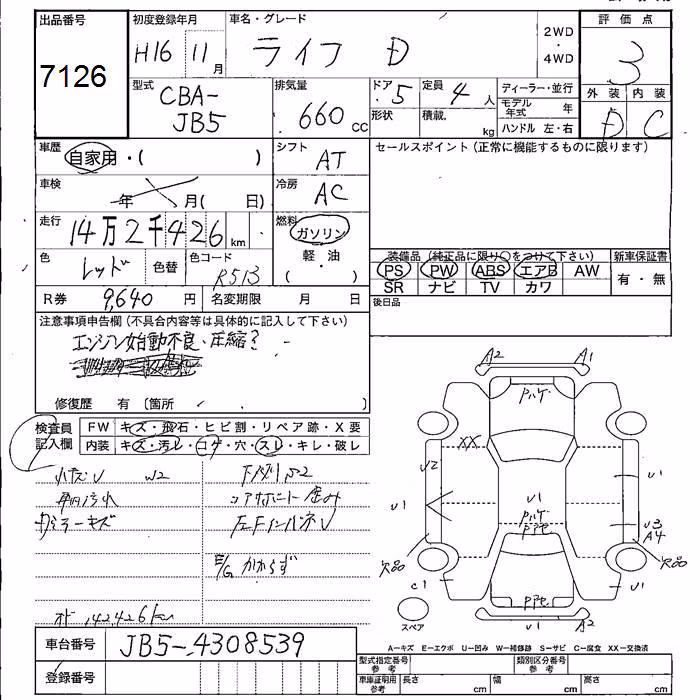 出品番号 初度登録年月 車名・グレード 評価点
7126 H16 11月 ライフ D 2WD・4WD 3
型式 排気量 ドア 定員 ディーラー・並行 外装 内装
CBA-JB5 660cc 5 4人 モデル年式 年 D C
形状 積載 kg ハンドル 左・右
車歴 自家用・( ) シフト AT セールスポイント(正常に機能するものに限ります)
車検 年 月( 日) 冷房 AC
走行 14万2千426km 燃料 ガソリン
軽・油
( )
色 レッド 色替 色コード R513
装備品(純正品に限り○をつけて下さい) 新車保証書
PS PW ABS エアB AW 有・無
SR ナビ TV カワ
R券 9,640円 名変期限 月 日 後日品
注意事項申告欄(不具合内容等は具体的に記入して下さい)
エンジン始動不良、圧縮?
修復歴 有〔箇所 〕
検査員記入欄 FW キズ・飛石・ヒビ割・リペア跡・X要
内装 キズ・汚レ・コゲ・穴・スレ・キレ・破レ
小キズU W2
車内汚れ
ドアミラーキズ
コアサポート歪み
E/G かからず
オド 142426km
A2 A1
XX
U2 U1
U1 U1
U3
A4
欠品 欠品
C1 U1
U1 A2
スペア
A=キズ E=エクボ U=凹み W=補修跡 S=サビ C=腐食 XX=交換済
車台番号 JB5-4308539
登録番号
型式指定番号 参考 類別区分番号 参考
車庫証明用 参考 長さ cm 幅 cm 高さ cm